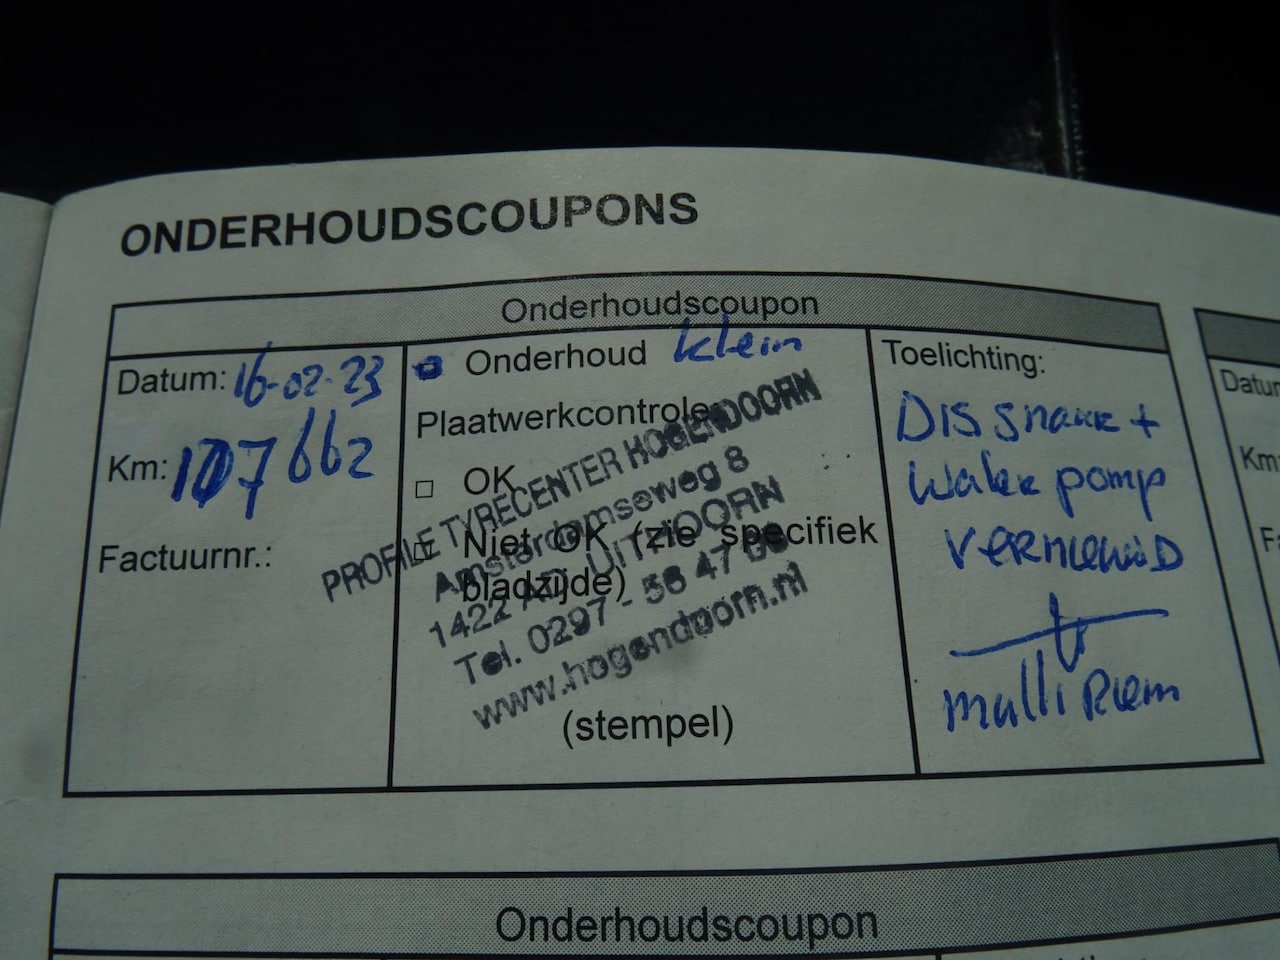 ONDERHOUDSCOUPONS
Onderhoudscoupon
Datum: 16-02-23
Km: 107662
Factuurnr.:
Onderhoud klein
Plaatwerkcontrole
OK
Niet OK (zie specifiek
bladzijde)
PROFILE TYRECENTER HOGENDOORN
Amsterdamseweg 8
1422 UITHOORN
Tel. 0297 - 56 47
www.hogendoorn.nl
(stempel)
Toelichting:
DIS snaar +
Water pomp
vernieuwD
multi Riem
Datum
Km
Fa
Onderhoudscoupon